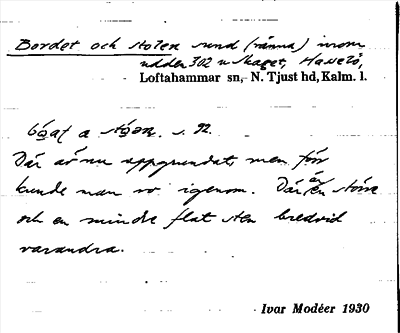 Bordet och stolen sund (ränna) inom
udden 302 n Skaget, Hasselö,
Loftahammar sn, N. Tjust hd, Kalm. l.
s. 92.
Där är nu uppgrundat, men förr
kunde man ro igenom. Där är en större
och en mindre flat sten bredvid
varandra.
Ivar Modéer 1930